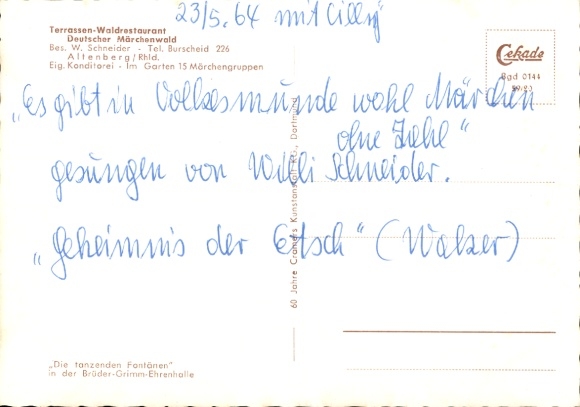 23/5.64 mit Cilly
Terrassen-Waldrestaurant
Deutscher Märchenwald
Bes. W. Schneider - Tel. Burscheid 226
Altenberg/Rhld.
Eig. Konditorei - Im Garten 15 Märchengruppen
Cekade
Bgd 0144
„Es gibt in Volkesmunde wohl Märchen
ohne Zahl“
gesungen von Willi Schneider.
„Geheimnis der Etsch“ (Walzer)
60 Jahre Cramers Kunstanstalt KG., Dortmund
„Die tanzenden Fontänen“
in der Brüder-Grimm-Ehrenhalle